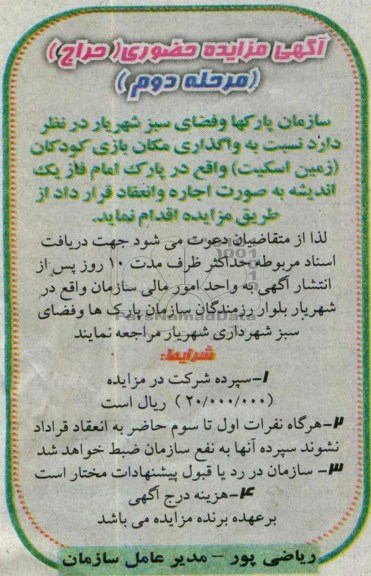 آگهی مزایده حضوری( حراج )
(مرحله دوم )
سازمان پارکها وفضای سبز شهریار در نظر
دارد نسبت به واگذاری مکان بازی کودکان
(زمین اسکیت) واقع در پارک امام فاز یک
اندیشه به صورت اجاره وانعقاد قرار داد از
طریق مزایده اقدام نماید.
لذا از متقاضیان دعوت می شود جهت دریافت
اسناد مربوطه حداکثر ظرف مدت ۱۰ روز پس از
انتشار آگهی به واحد امور مالی سازمان واقع در
شهریار بلوار رزمندگان سازمان پارک ها وفضای
سبز شهرداری شهریار مراجعه نمایند
شرایط:
۱-سپرده شرکت در مزایده
(۲۰/۰۰۰/۰۰۰ ) ریال است
۲-هرگاه نفرات اول تا سوم حاضر به انعقاد قراداد
نشوند سپرده آنها به نفع سازمان ضبط خواهد شد
۳- سازمان در رد یا قبول پیشنهادات مختار است
۴-هزینه درج آگهی
برعهده برنده مزایده می باشد
ریاضی پور - مدیر عامل سازمان